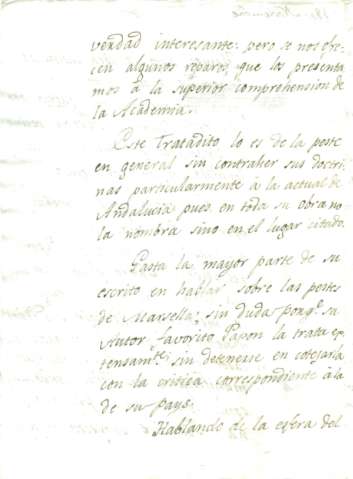 verdad interesante: pero se nos ofre-
cen algunos reparos, que los presenta-
mos à la superior comprehension de
la Academia.
Este Tratadito lo es de la peste
en general sin contraher sus doctri-
nas particularmente à la actual de
Andalucia pues en toda su obra no
la nombra sino en el lugar citado.
Gasta la mayor parte de su
escrito en hablar sobre las pestes
de Marsella; sin duda porq.e su
Autor favorito Papon la trata ex-
tensam.te sin detenerse en cotejarla
con la critica correspondiente à la
de su pays.
Hablando de la esfera del